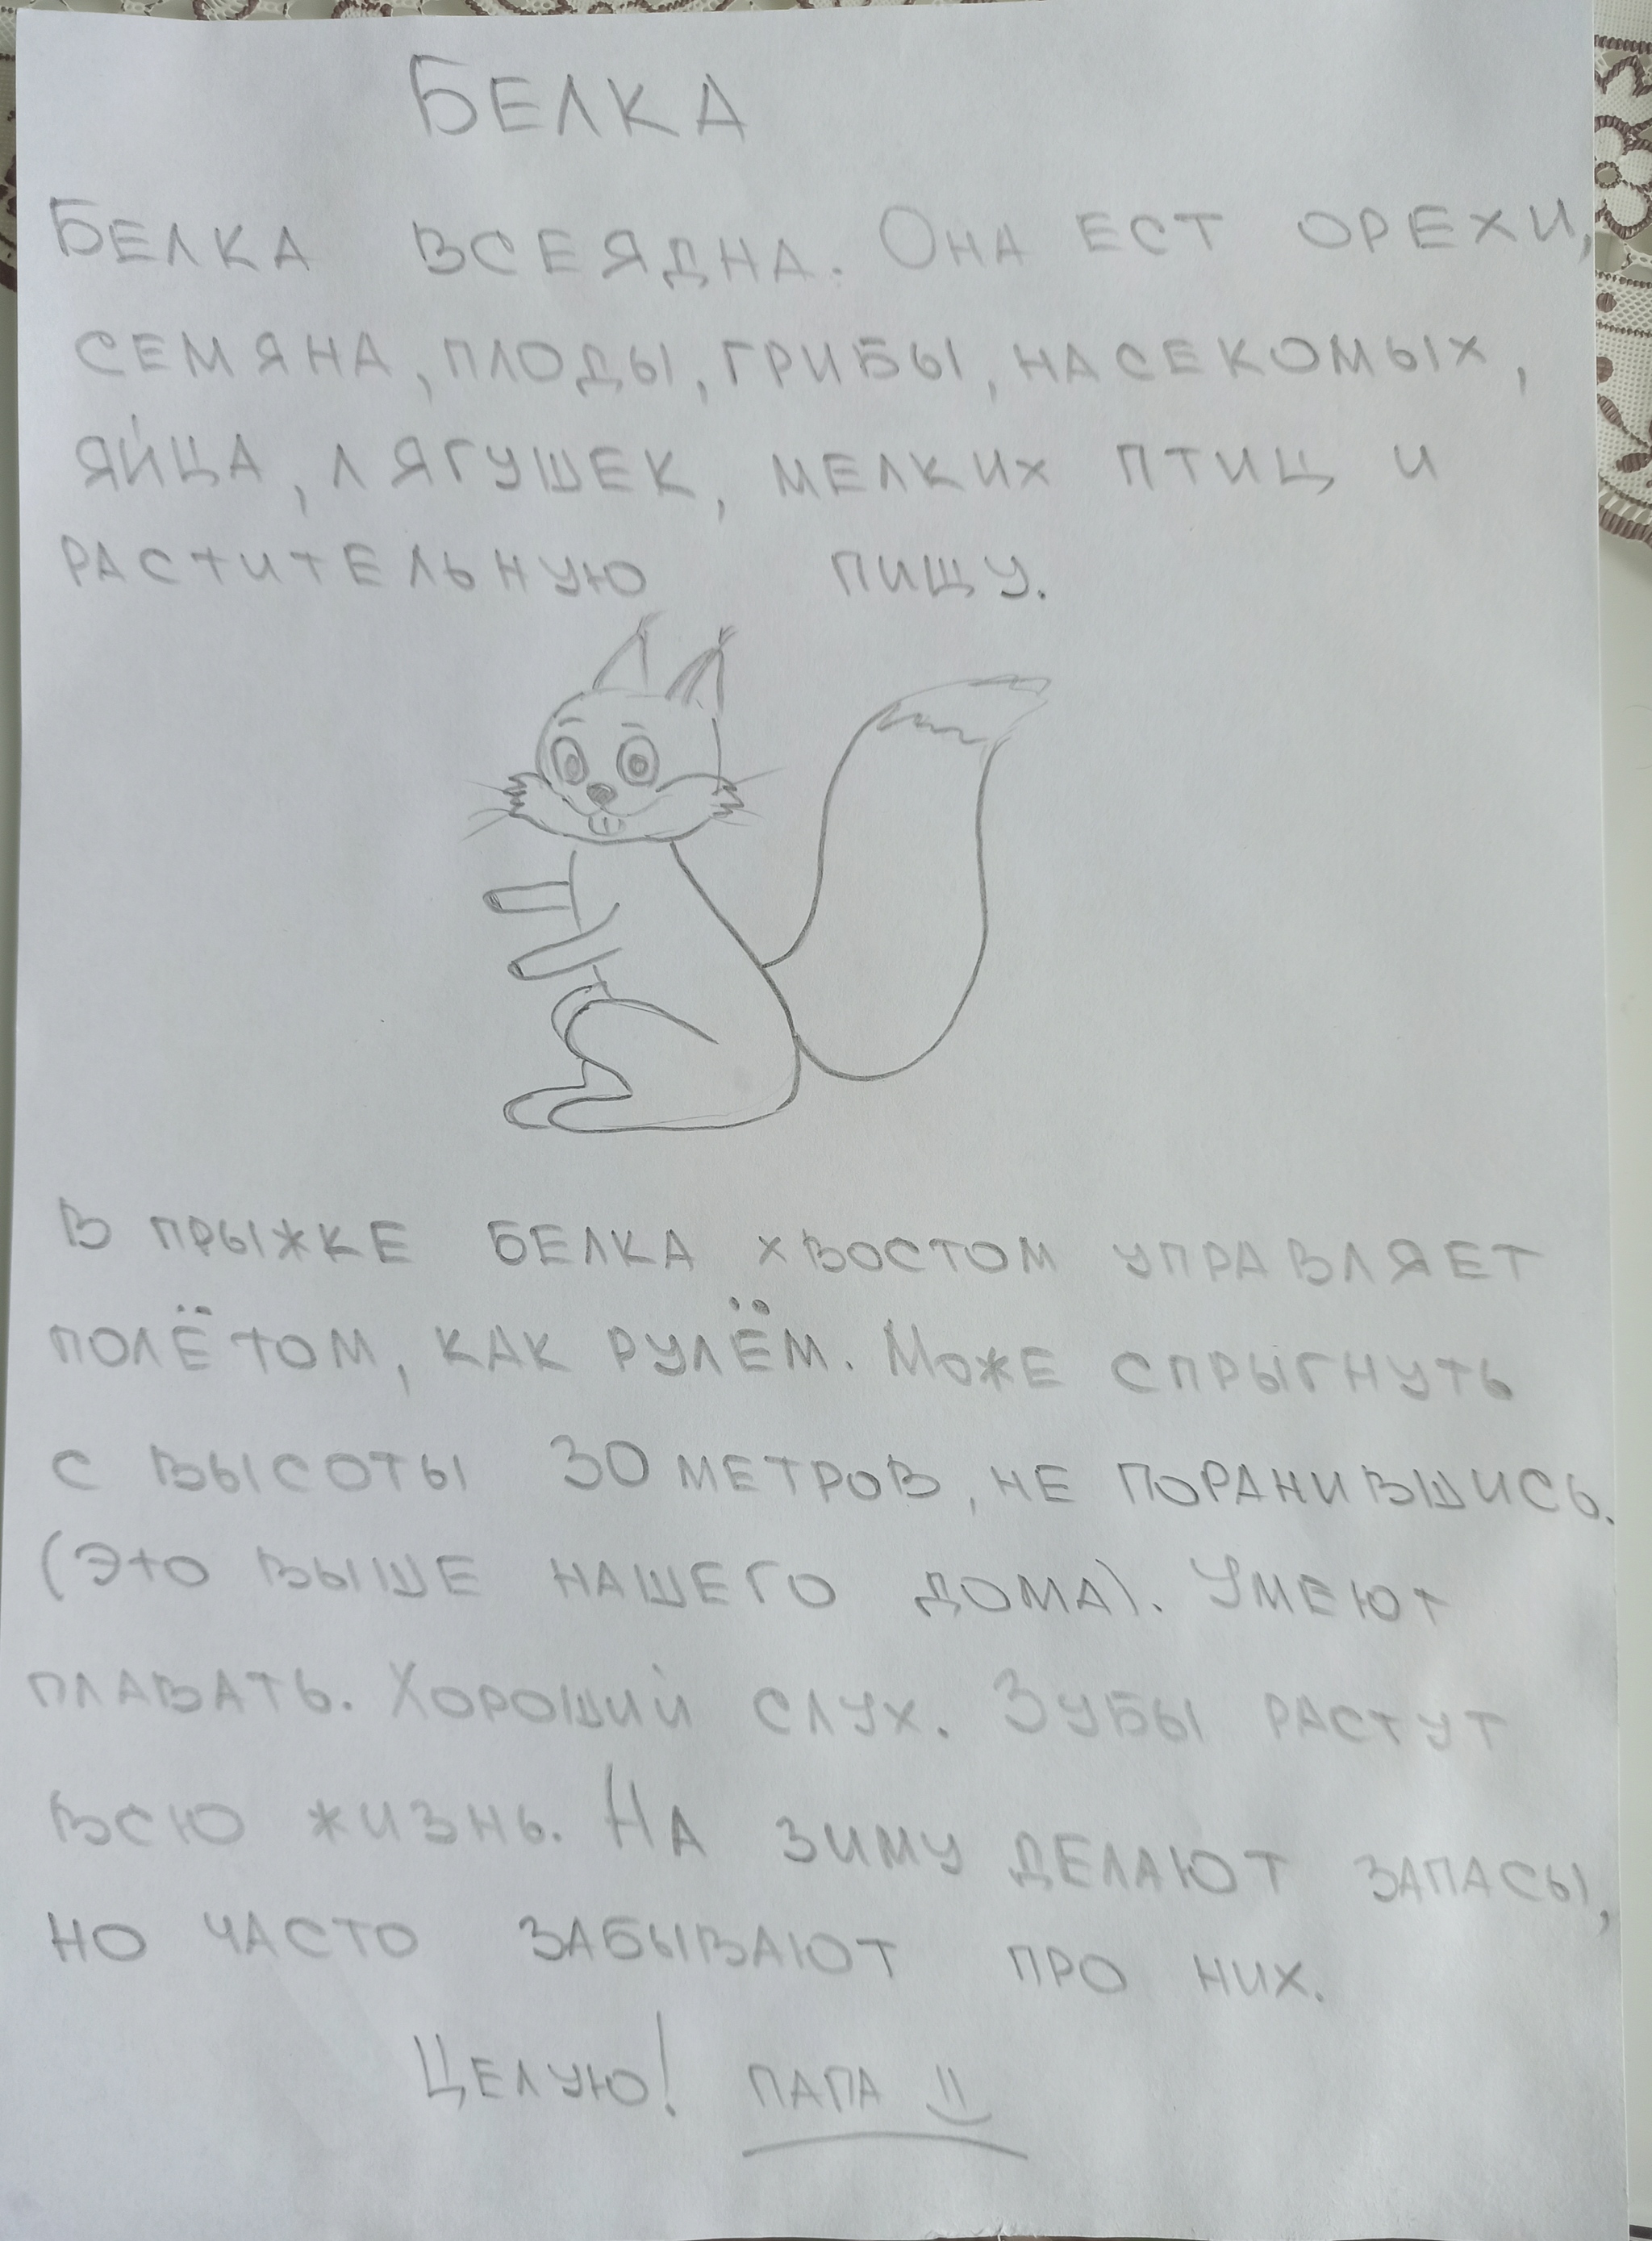 БЕЛКА
БЕЛКА ВСЕЯДНА. ОНА ЕСТ ОРЕХИ,
СЕМЯНА, ПЛОДЫ, ГРИБЫ, НАСЕКОМЫХ,
ЯЙЦА, ЛЯГУШЕК, МЕЛКИХ ПТИЦ И
РАСТИТЕЛЬНУЮ ПИЩУ.
В ПРЫЖКЕ БЕЛКА ХВОСТОМ УПРАВЛЯЕТ
ПОЛЁТОМ, КАК РУЛЁМ. МОЖЕ СПРЫГНУТЬ
С ВЫСОТЫ 30 МЕТРОВ, НЕ ПОРАНИВШИСЬ.
(ЭТО ВЫШЕ НАШЕГО ДОМА). УМЕЮТ
ПЛАВАТЬ. ХОРОШИЙ СЛУХ. ЗУБЫ РАСТУТ
ВСЮ ЖИЗНЬ. НА ЗИМУ ДЕЛАЮТ ЗАПАСЫ,
НО ЧАСТО ЗАБЫВАЮТ ПРО НИХ.
ЦЕЛУЮ! ПАПА